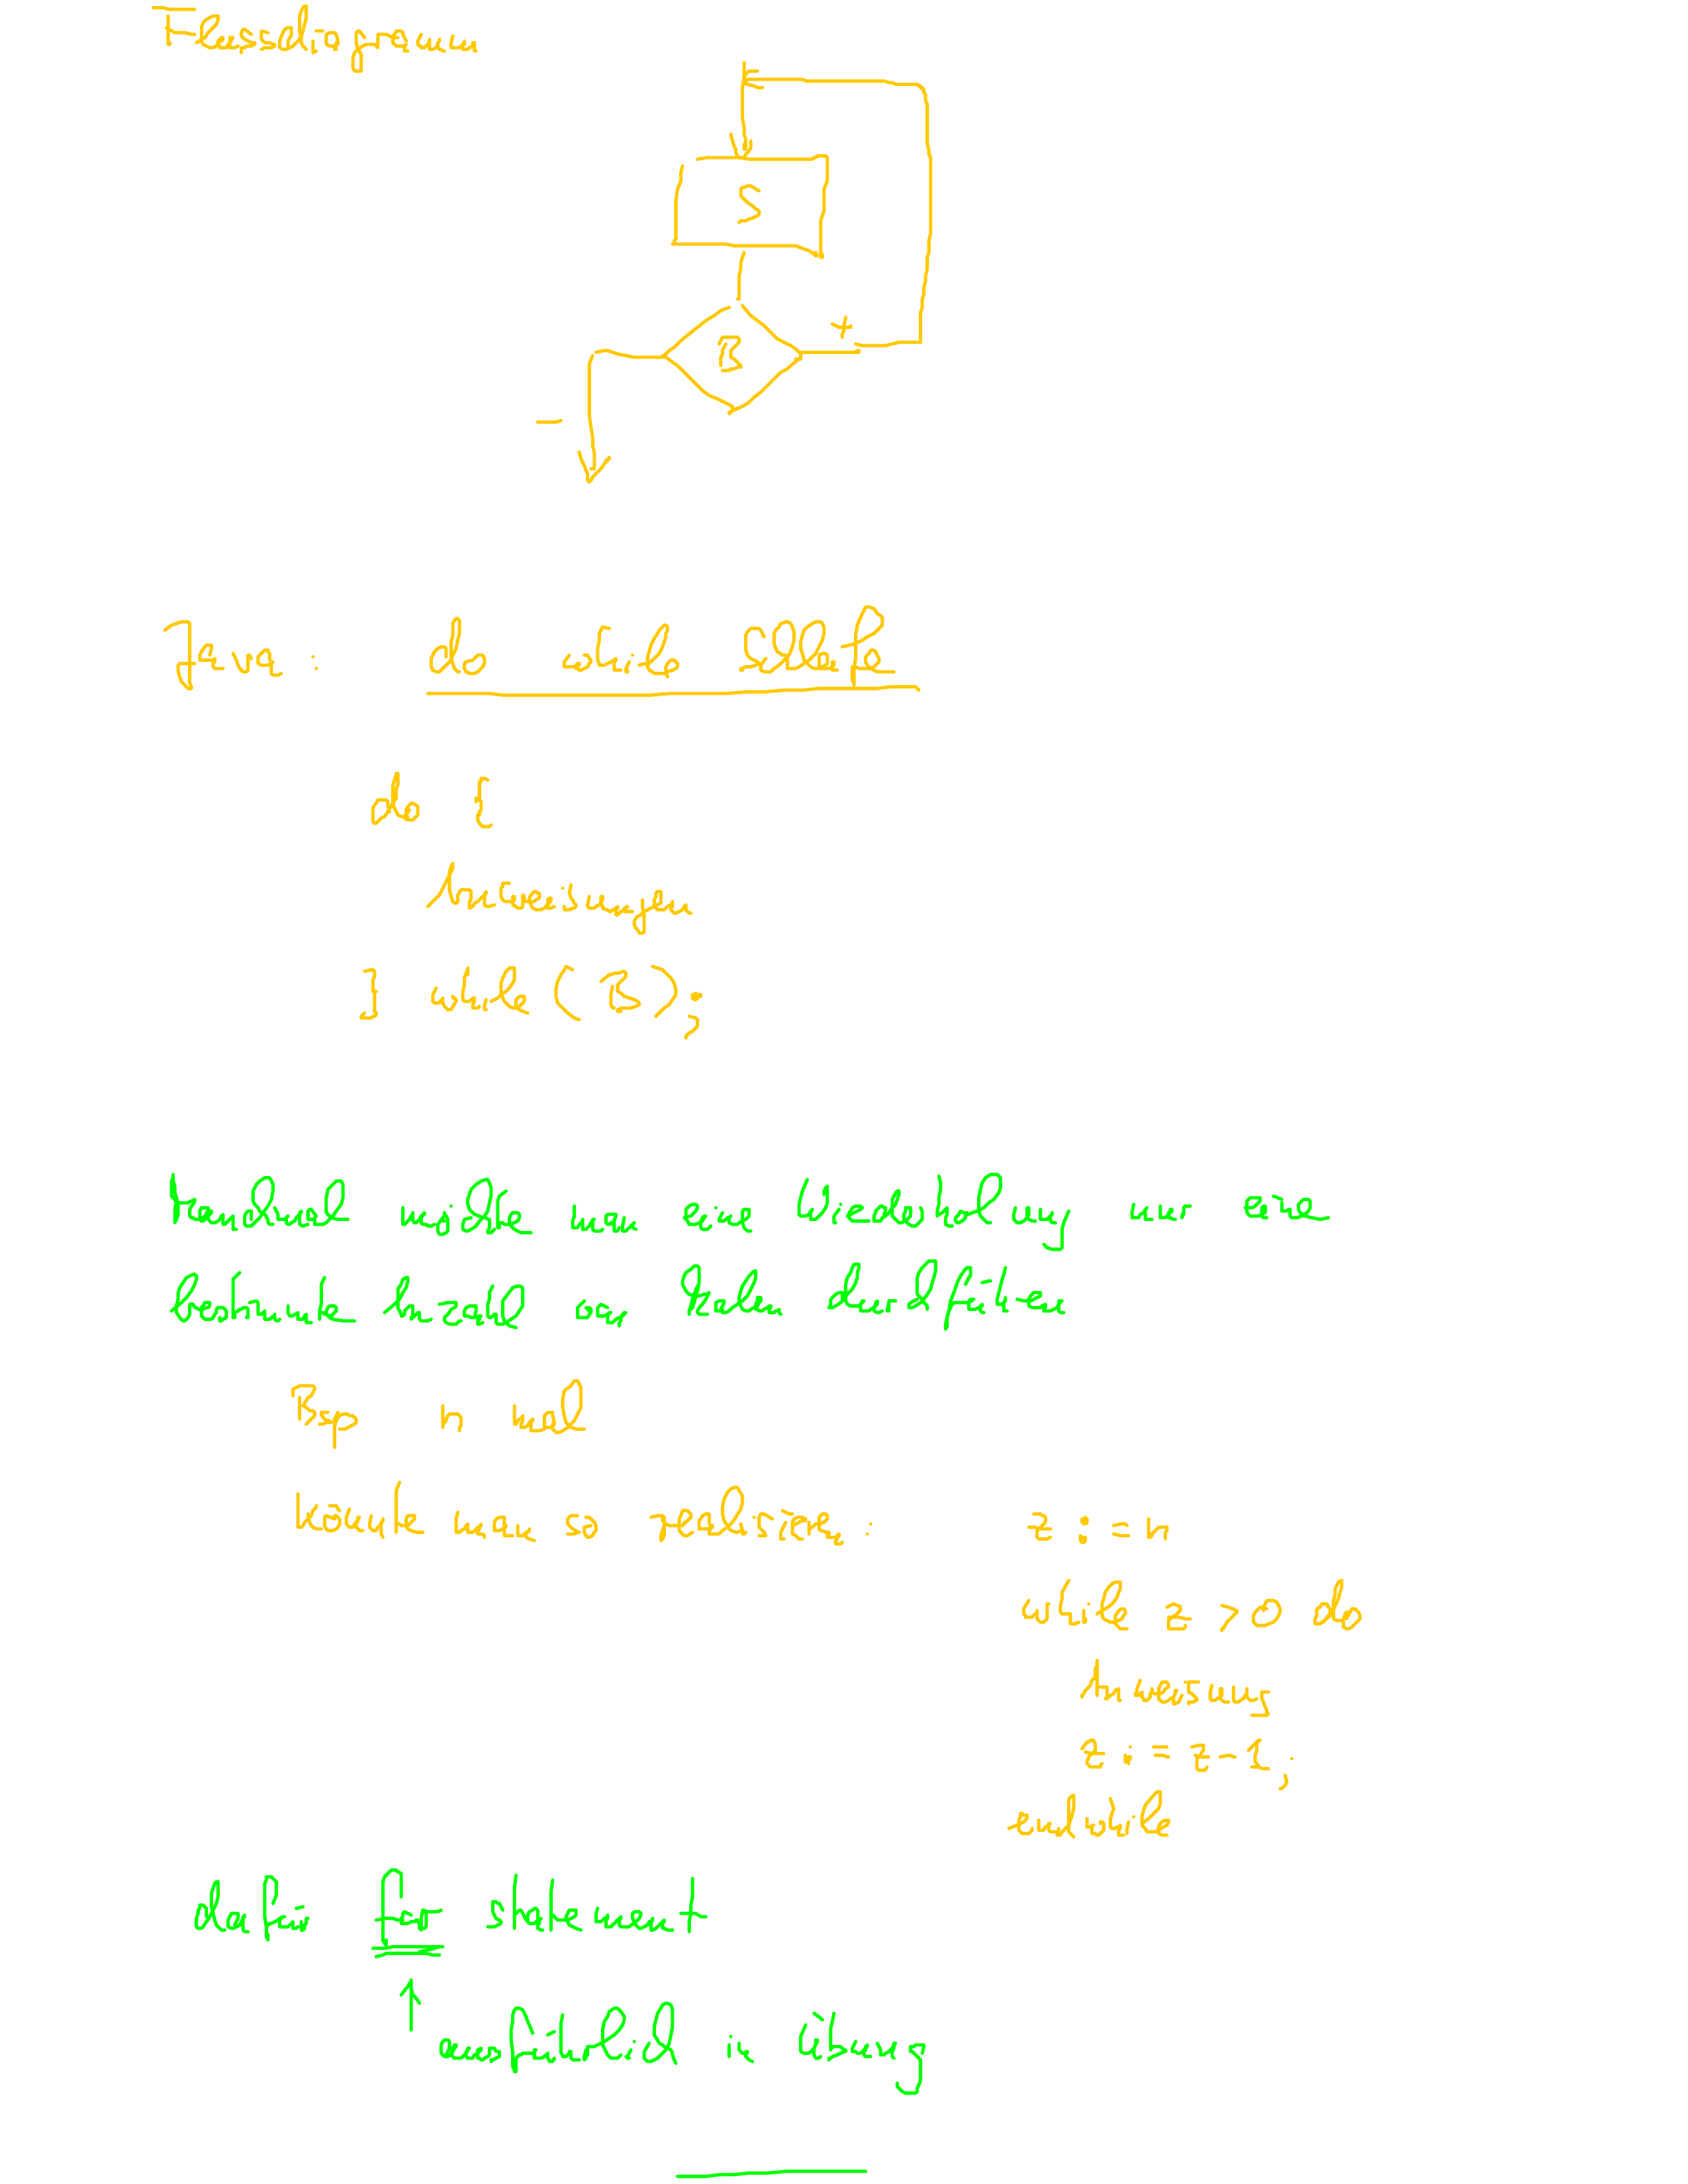 Flussdiagramm
S
B
+
-
Java: do while Schleife
do {
Anweisungen
} while (B);
Manchmal möchte man eine Wiederholung nur eine
bestimmte Anzahl von Malen durchführen
Bsp n mal
könnte man so realisieren: z := n
while z > 0 do
Anweisung
z := z - 1;
endwhile
dafür for statement
↑
ausführlich in Übung